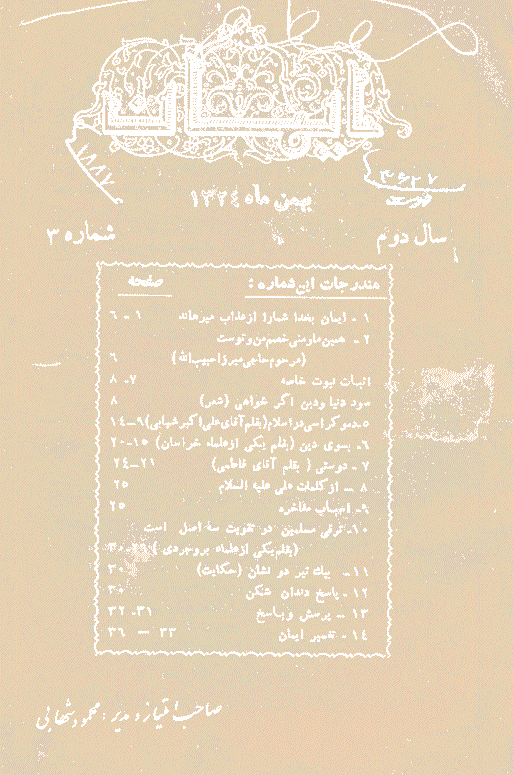 ایمان
۱۸۸۷
۴۶۲۷
بهمن ماه ۱۳۲٤
سال دوم
شماره ۳
مندرجات این شماره :
صفحه
۱ - ایمان بخدا شمارا ازعذاب میرهاند ۱ - ٦
۲ - همین مارمنی خصم من و توست
(مرحوم حاجی میرزا حبیب الله) ٦
اثبات نبوت خاصه ۷- ۸
سود دنیا ودین اگر خواهی (شعر) ۸
۵-دموکراسی در اسلام(بقلم آقای علی اکبر شهابی) ۹-۱٤
٦- بسوی دین (بقلم یکی ازعلماء خراسان) ۱۵-۲۰
۷ - دوستی ( بقلم آقای فاطمی) ۲۱-۲٤
۸ - ازکلمات علی علیه السلام ۲۵
۹- اسباب مفاخره ۲۵
۱۰-ترقی مسلمین در تقویت سه اصل است
(بقلم یکی ازعلماء بروجردی) ۳۰
۱۱- پیک تیر در نشان (حکایت) ۳۰
۱۲ - پاسخ دندان شکن ۳۰
۱۳ - پرسش وپاسخ ۳۱- ۳۲
۱٤ - تفسیر ایمان ۳۳ - ۳٦
صاحب امتیاز و مدیر : محمود شهابی